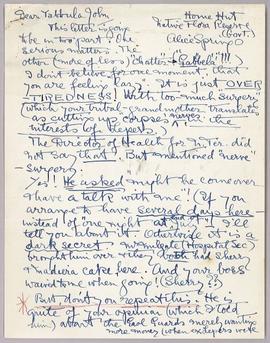 Dear Tabbula John, Home Hut
Native Flora Reserve
(Govt.)
Alice Springs
This letter is going
to be in two parts: One
Serious matters. The
other (more or less) Chatter + "Gabble"!!!)
I don't believe for one moment, that
you are feeling lazy. It is just OVER
TIREDNESS! With too much Surgery
(which your tribal-grandmother translates
as cutting up corpses in the
interests of sleepers.)
never
The Director of Health for N. Ter. did
not say that! But mentioned "nerve"
Surgery.
Yes! He asked might he come over
& have a talk with me"! (If you
arrange to have several days here
instead of one night as just I'll
tell you about it. Otherwise it is a
dark secret. Mr (Hospital Sec)
brought him over & they both had sherry
& madeira cake here. And your boss
waived to me when going! (Sherry??)
But, don't you repeat this: He is
quite of your opinion (which I told
him) about the Guards merely wanting
more money (when excepers were